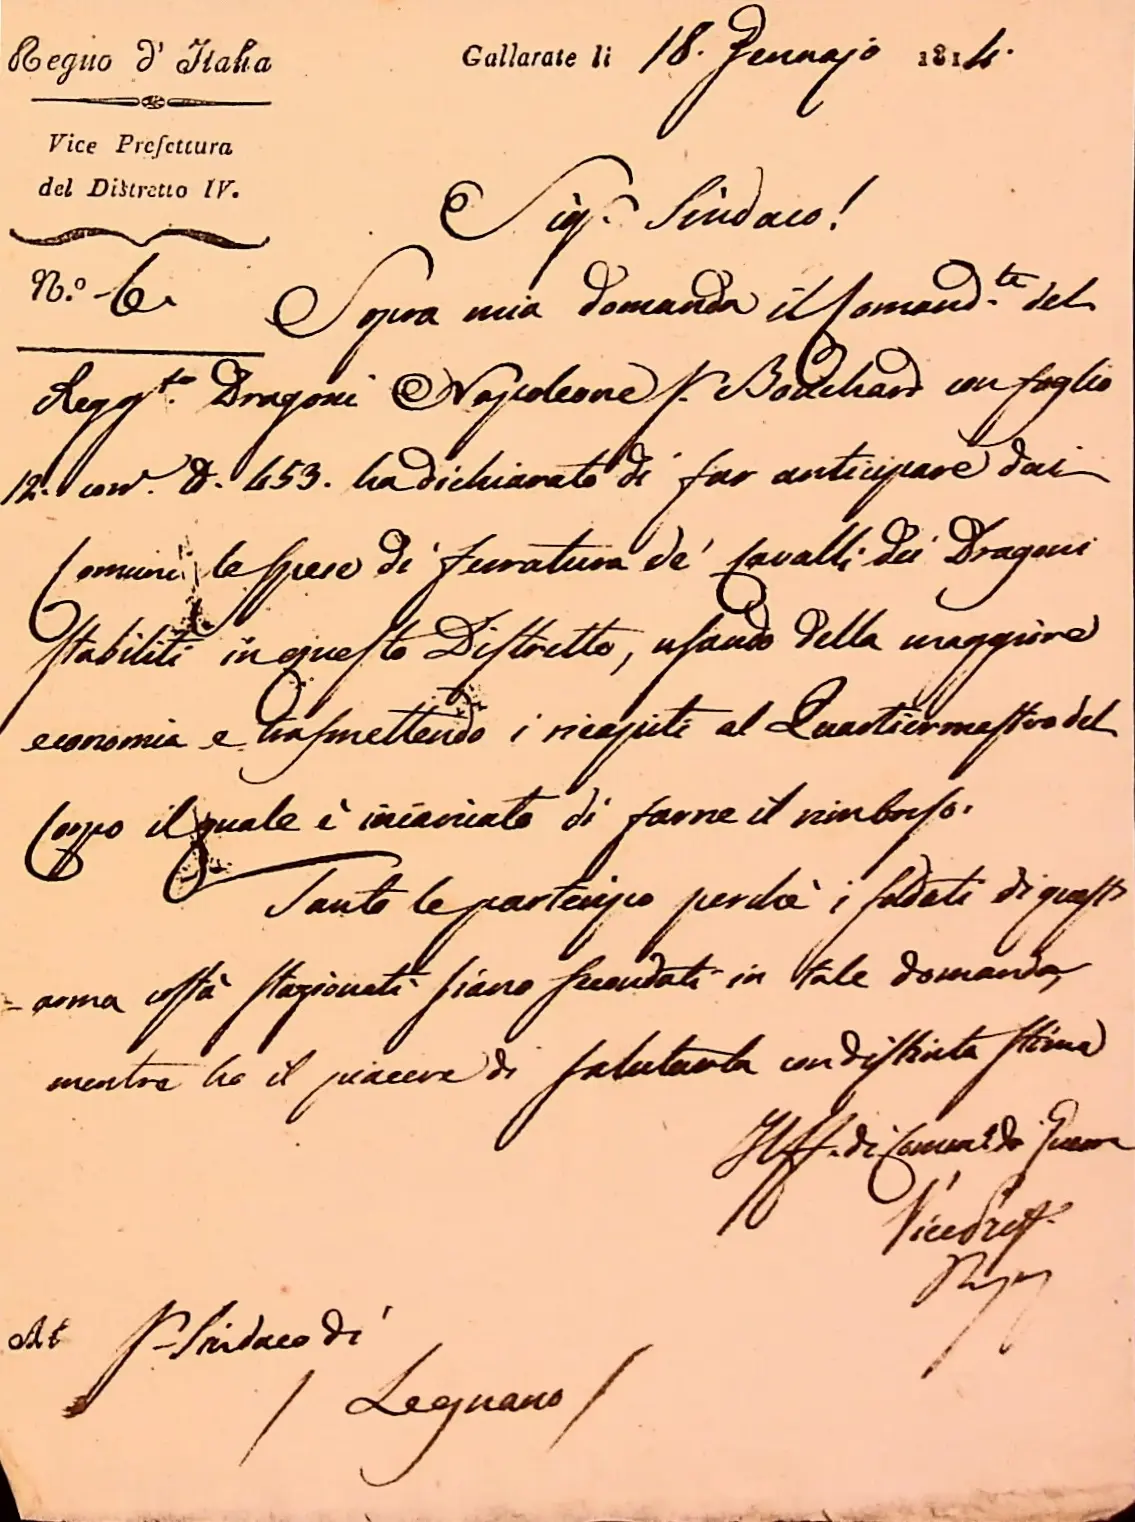 Regno d' Italia
Gallarate li 18. Gennajo 1814.
Vice Prefettura
del Distretto IV.
N.º 6.
Sig.r Sindaco!
Sopra mia domanda il Comand.te del
Regg.to Dragoni Napoleone S.r Bouchard con foglio
12. corr. N. 453. ha dichiarato di far anticipare dai
Comuni le spese di ferratura de' Cavalli dei Dragoni
stabiliti in questo Distretto, usando della maggiore
economia e trasmettendo i ricapiti al Quartiermastro del
Corpo il quale è incaricato di farne il rimborso.
Tanto le partecipo perchè i soldati di quest'
arma costà stazionati siano secondati in tale domanda,
mentre ho il piacere di salutarla con distinta stima
Uff. di Comm. di Guerra
Vice Pref.
Al S.r Sindaco di
/ Legnano /